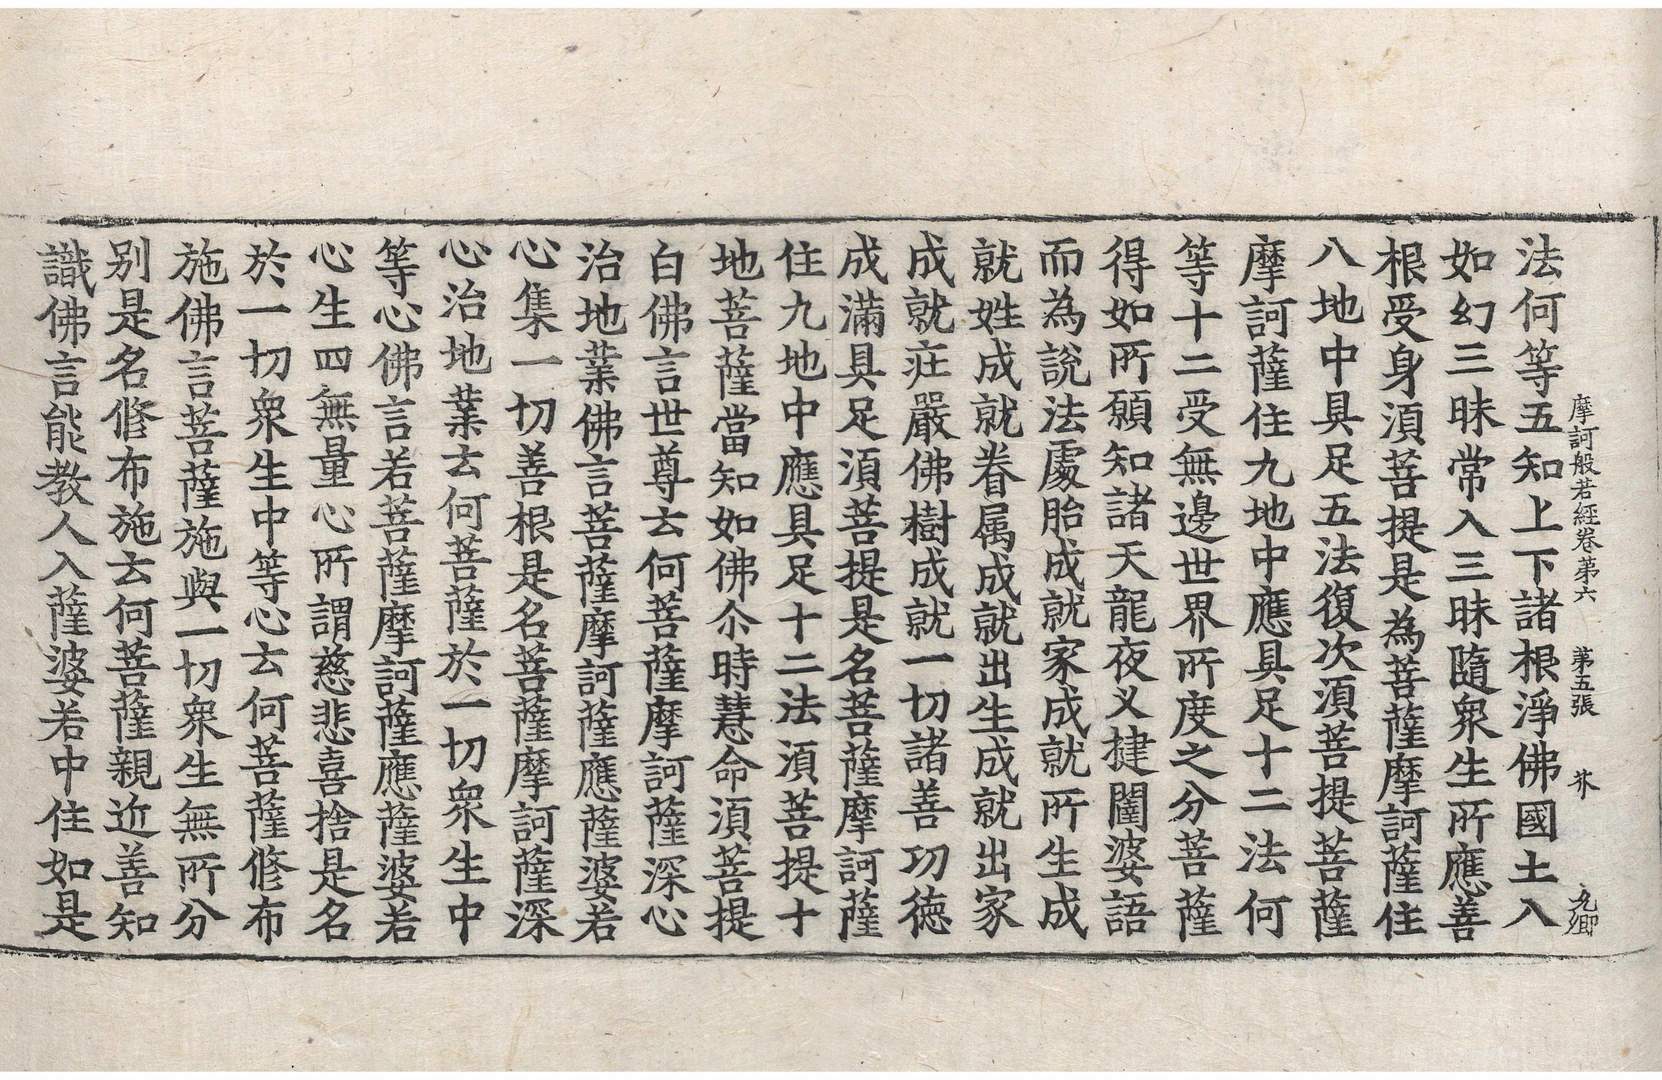 摩訶般若經卷第六 第五張 芥 九卿
法何等五知上下諸根淨佛國土入
如幻三昧常入三昧隨衆生所應善
根受身須菩提是為菩薩摩訶薩住
八地中具足五法復次須菩提菩薩
摩訶薩住九地中應具足十二法何
等十二受無邊世界所度之分菩薩
得如所願知諸天龍夜叉揵闥婆語
而為說法處胎成就家成就所生成
就姓成就眷属成就出生成就出家
成就莊嚴佛樹成就一切諸善功德
成滿具足須菩提是名菩薩摩訶薩
住九地中應具足十二法須菩提十
地菩薩當知如佛尒時慧命須菩提
白佛言世尊云何菩薩摩訶薩深心
治地業佛言菩薩摩訶薩應薩婆若
心集一切善根是名菩薩摩訶薩深
心治地業云何菩薩於一切衆生中
等心佛言若菩薩摩訶薩應薩婆若
心生四無量心所謂慈悲喜捨是名
於一切衆生中等心云何菩薩修布
施佛言菩薩施與一切衆生無所分
別是名修布施云何菩薩親近善知
識佛言能教人入薩婆若中住如是